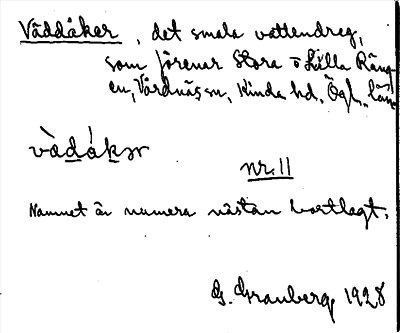 Väddåker, det smala vattendrag,
som förenar Stora o Lilla Räng-
en, Vårdnäs sn, Kinda hd, Ögl. län
vàdåkər
nr. 11
Namnet är numera nästan bortlagt.
G. Granberg 1928